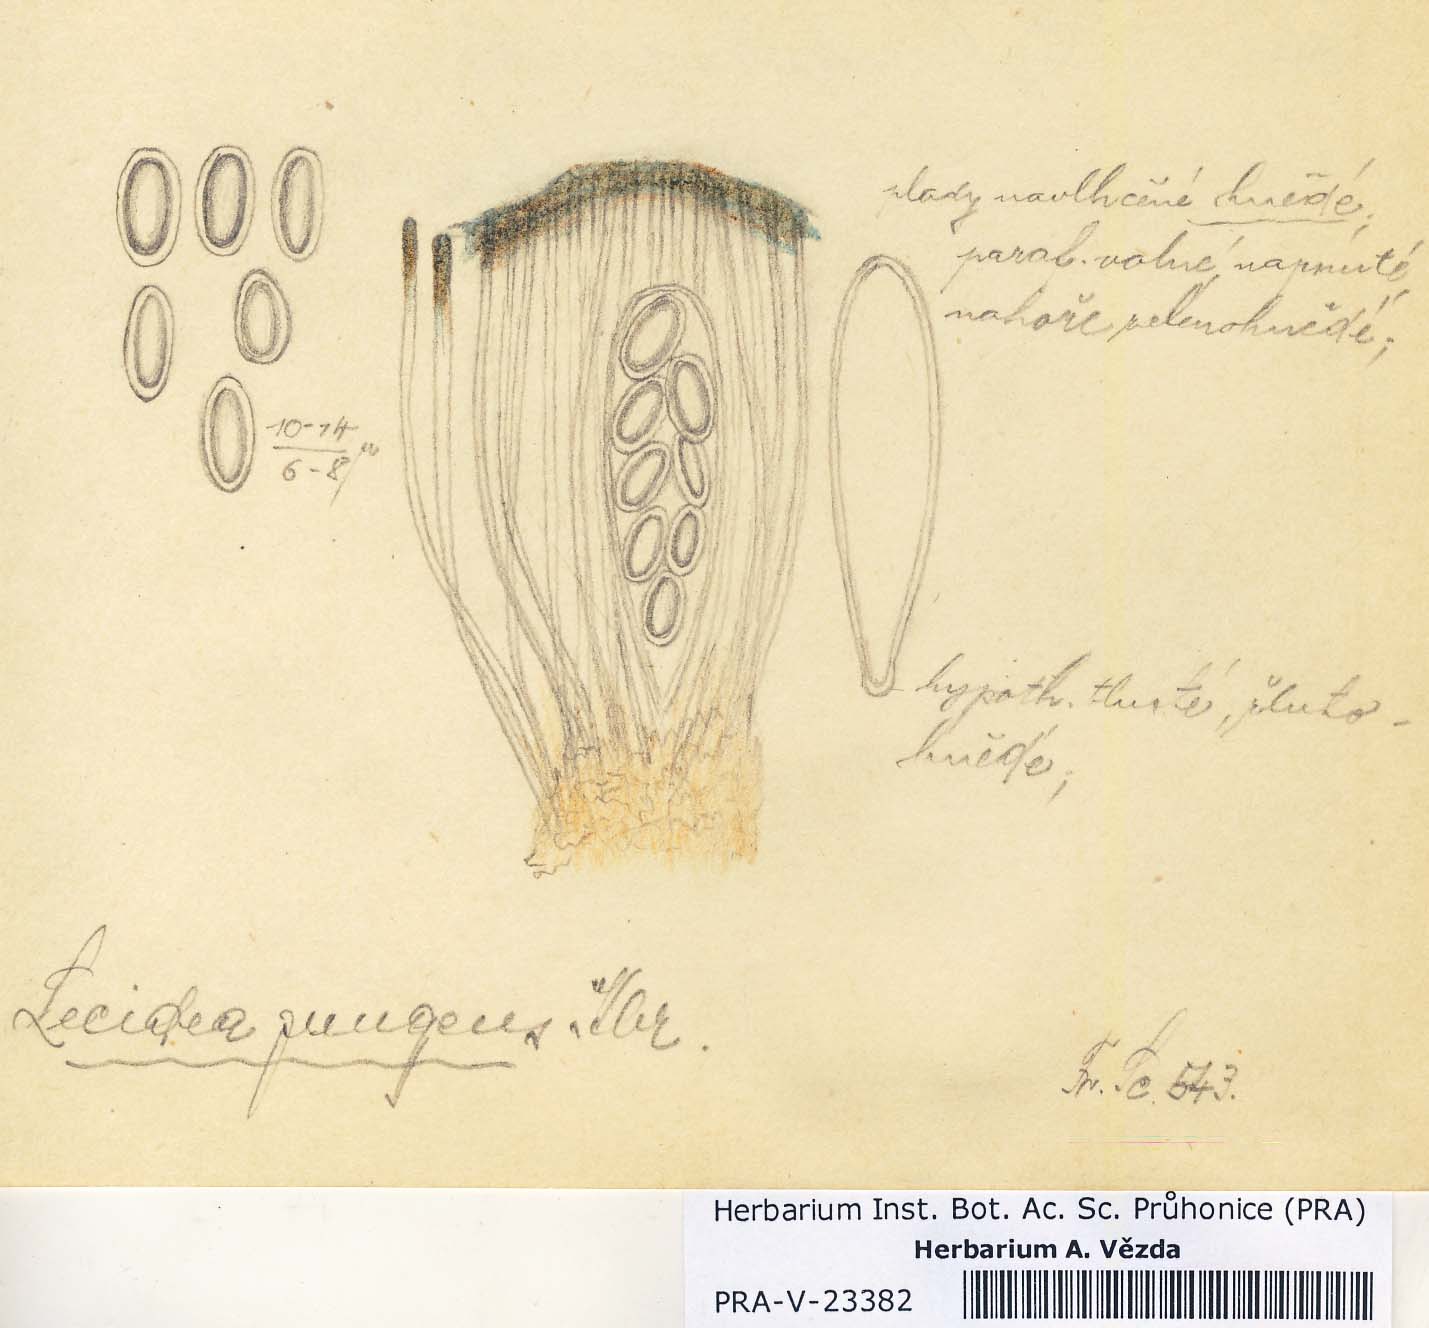 plody navlhčené hnědé,
paraf. volné, napnuté,
nahoře zelenohnědé;
10-14
6-8 µ
hypoth. tlusté, žluto-
hnědé;
Lecidea pungens
Fr. 543.
Herbarium Inst. Bot. Ac. Sc. Průhonice (PRA)
Herbarium A. Vězda
PRA-V-23382